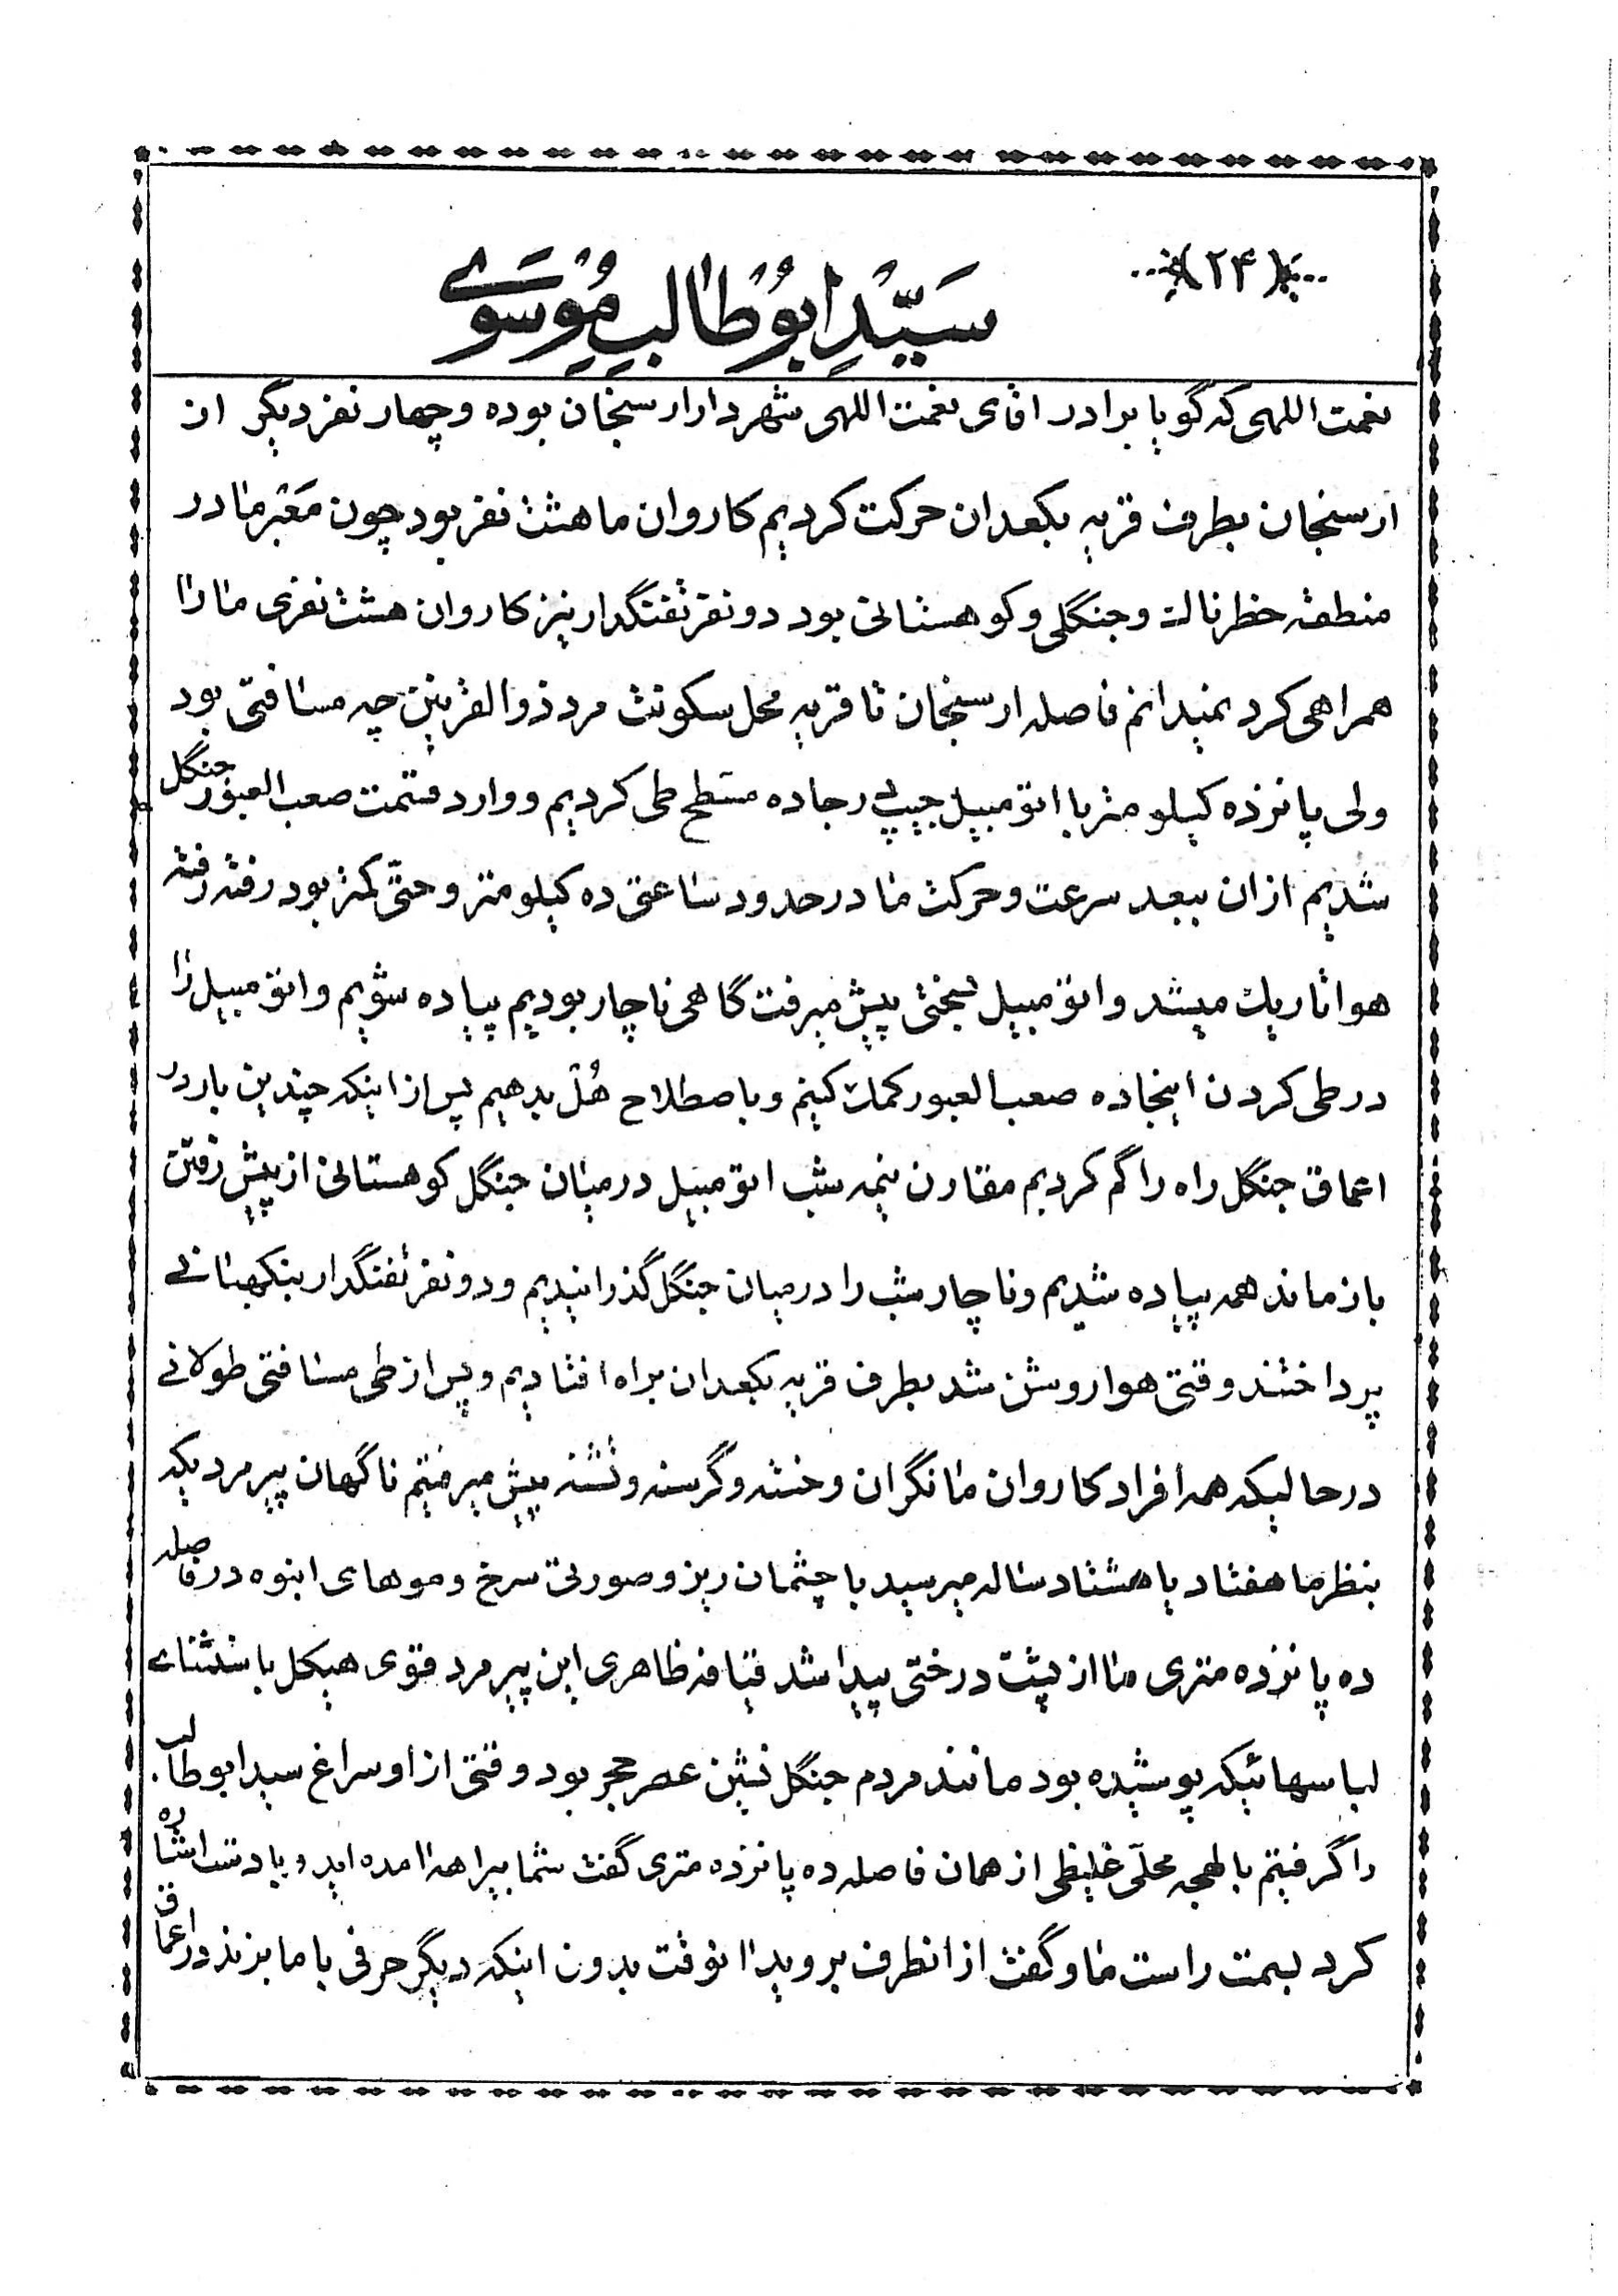 (۲۴)
سَیّدِ ابُوطالبِ مُوسَوی
نعمت اللهی که گویا برادر اقای نعمت اللهی شهردار ارسنجان بوده و چهار نفر دیگر از
ارسنجان بطرف قریه بکعدان حرکت کردیم کاروان ما هشت نفر بود چون مَعبَر ما در
منطقه خطرناک و جنگلی و کوهستانی بود دو نفر تفنگدار نیز کاروان هشت نفری ما را
همراهی کرد نمیدانم فاصله ارسنجان تا قریه محل سکونت مرد ذوالقرنین چه مسافتی بود
ولی پانزده کیلو متر با اتومبیل جیپ در جاده مسَطح طی کردیم و وارد قسمت صعب العبور جنگل
شدیم از ان ببعد سرعت و حرکت ما در حدود ساعتی ده کیلو متر و حتّی کمتر بود رفته رفته
هوا تاریک میشد و اتومبیل بسختی پیش میرفت گاهی ناچار بودیم پیاده شویم و اتومبیل را
در طی کردن اینجاده صعب العبور کمک کنیم و باصطلاح هُل بدهیم پس از اینکه چندین بار در
اعماق جنگل راه را گم کردیم مقارن نیمه شب اتومبیل در میان جنگل کوهستانی از پیش رفتن
باز ماند همه پیاده شدیم و ناچار شب را در میان جنگل گذرانیدیم و دو نفر تفنگدار بنگهبانی
پرداختند وقتی هوا روشن شد بطرف قریه بکعدان براه افتادیم و پس از طی مسافتی طولانی
در حالیکه همه افراد کاروان ما نگران و خسته و گرسنه و تشنه پیش میرفتیم ناگهان پیر مردیکه
بنظر ما هفتاد یا هشتاد ساله میرسید با چشمان ریز و صورتی سرخ و موهای انبوه در فاصله
ده پانزده متری ما از پشت درختی پیدا شد قیافه ظاهری این پیر مرد قوی هیکل باستثنای
لباسهائیکه پوشیده بود مانند مردم جنگل نشین عصر حجر بود وقتی از او سراغ سید ابوطالب
را گرفتیم با لهجه محلّی غلیظی از همان فاصله ده پانزده متری گفت شما بیراهه امده اید و با دست اشاره
کرد بسمت راست ما و گفت از انطرف بروید انوقت بدون اینکه دیگر حرفی با ما بزند در اعماق